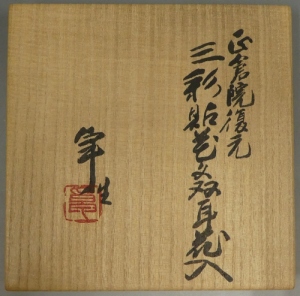 正倉院復元
三彩貼花文双耳花入
宰性